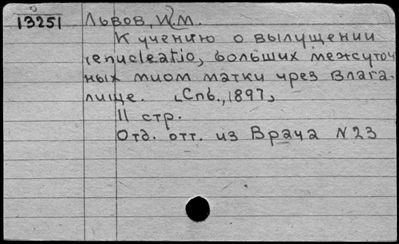 13251 Львов, И.М.
К учению о вылущении
(enucleatio, больших межуточ
ных миом матки чрез влага-
лище. [Спб., 1897]
11 стр.
Отд. отт. из Врача N 23